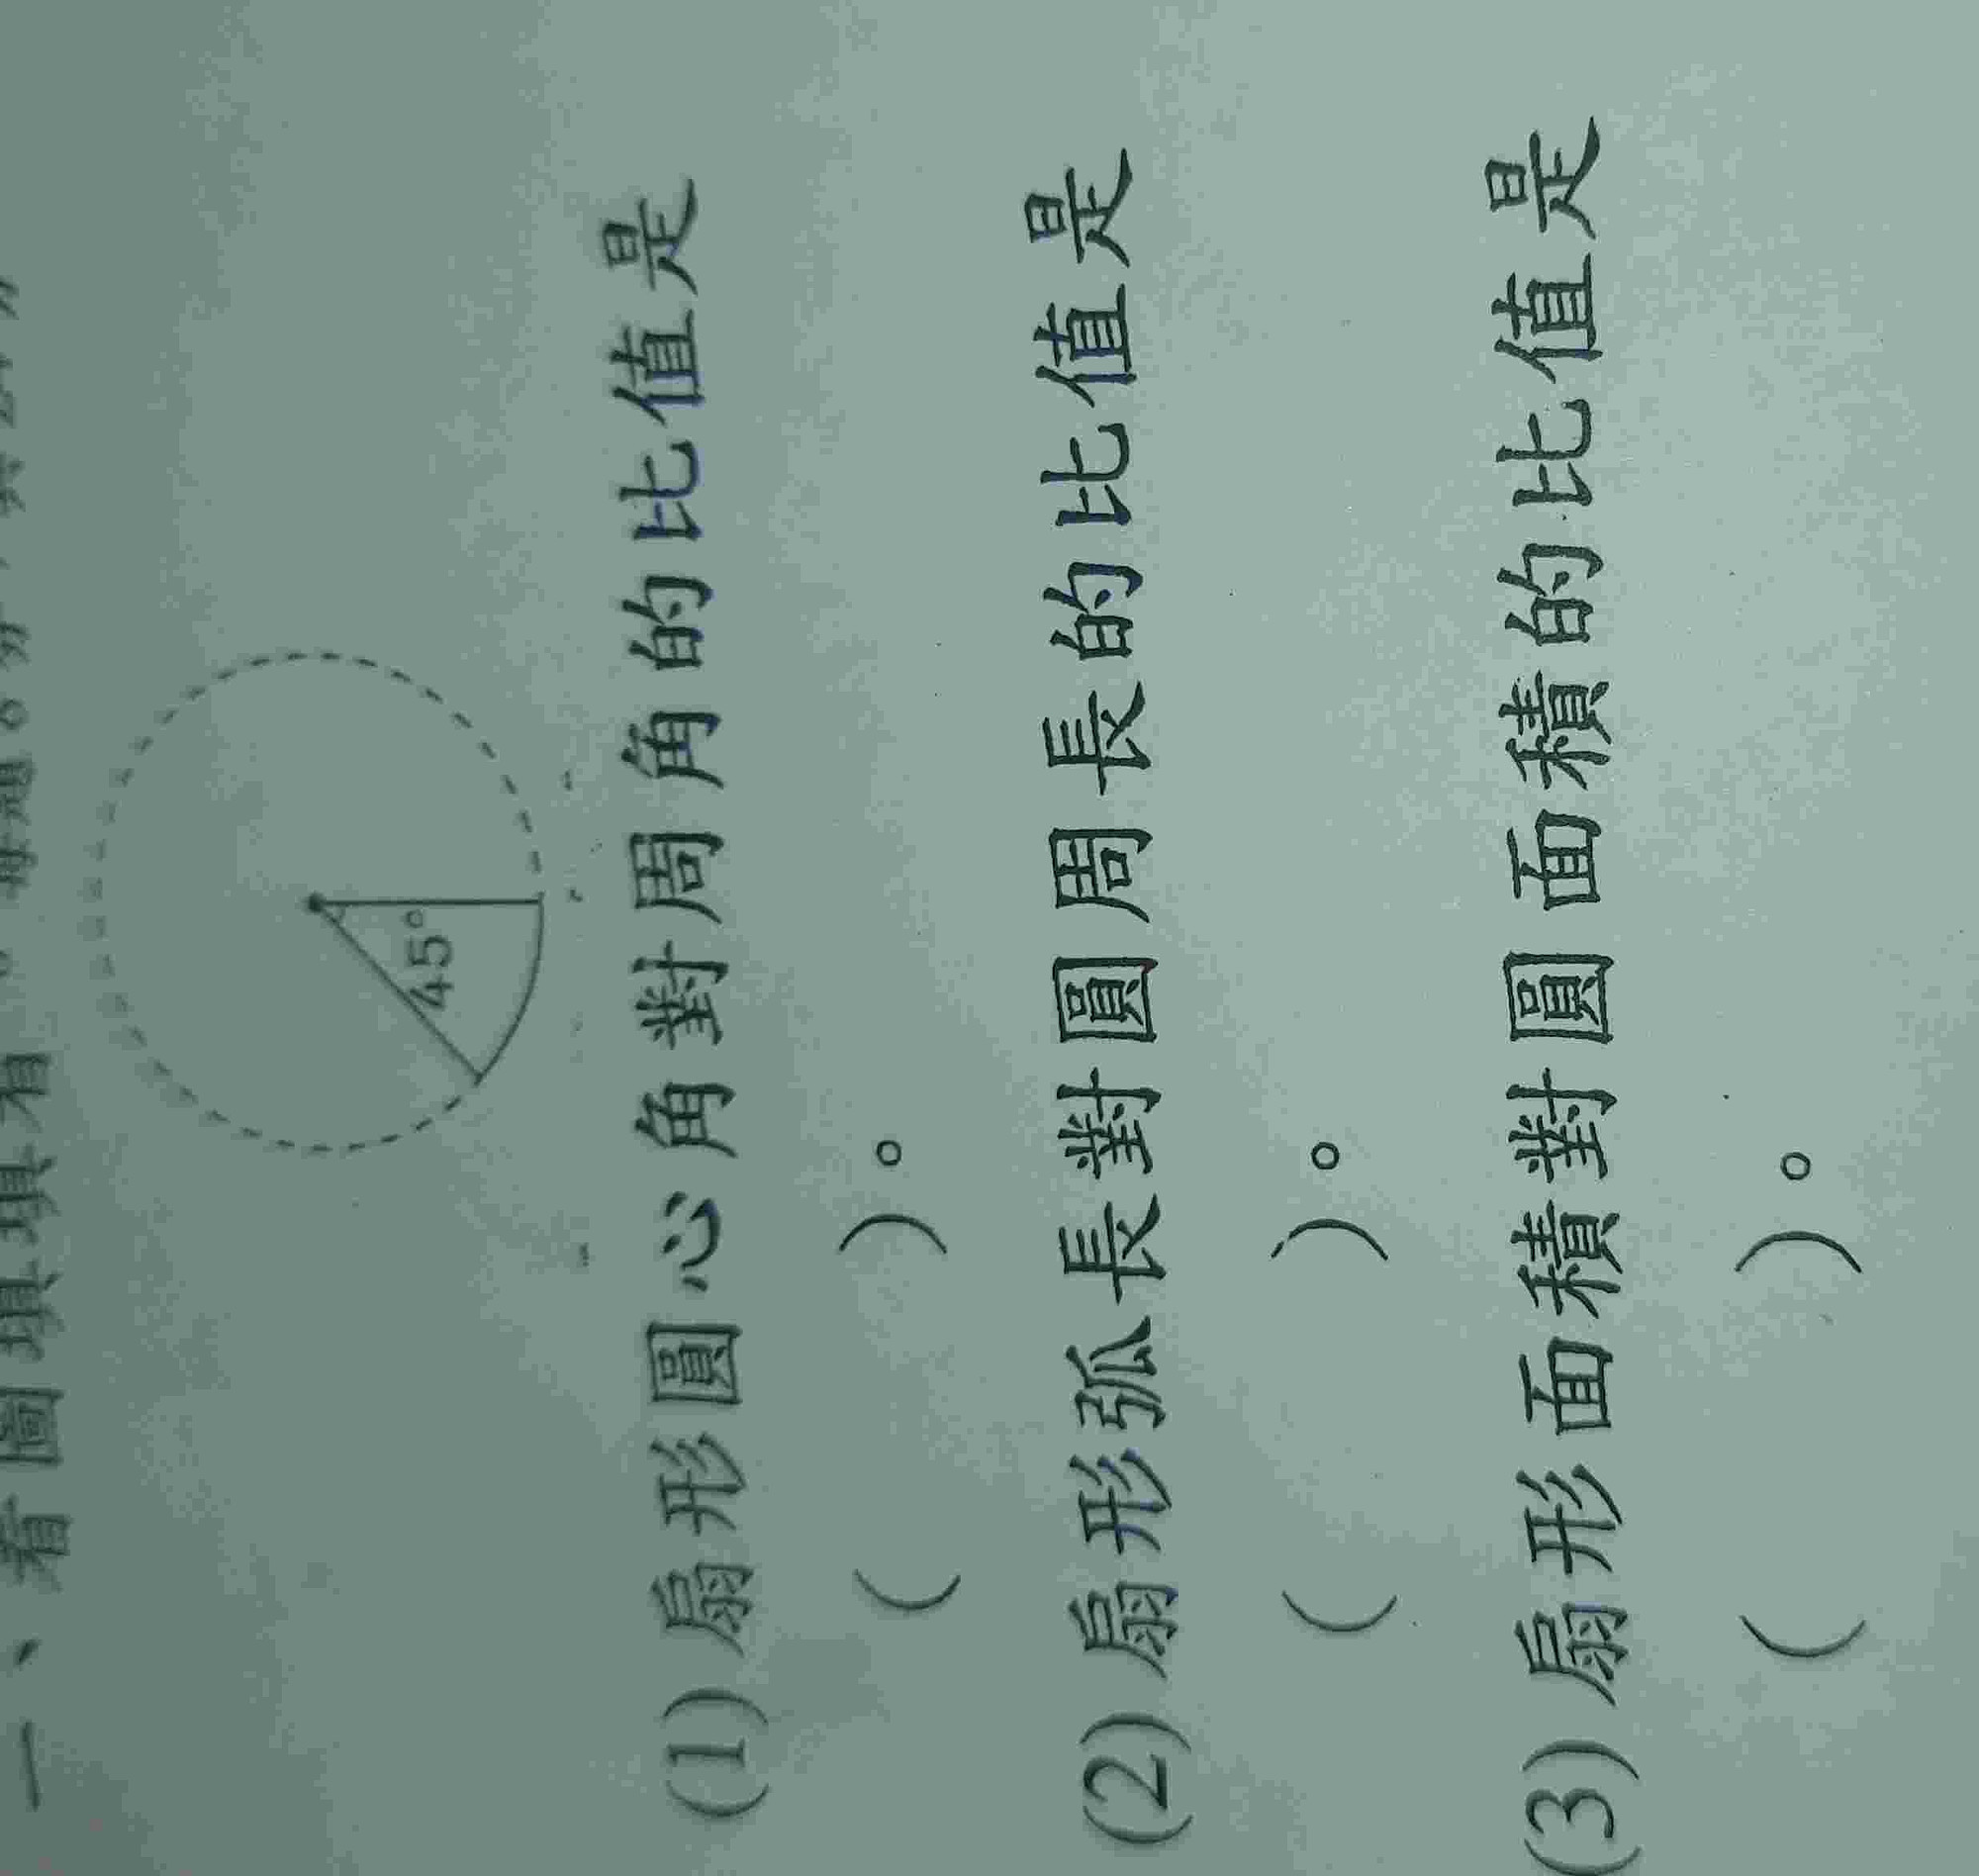 一、看圖填填看
45°
(1)扇形圓心角對周角的比值是
(　　)。
(2)扇形弧長對圓周長的比值是
(　　)。
(3)扇形面積對圓面積的比值是
(　　)。